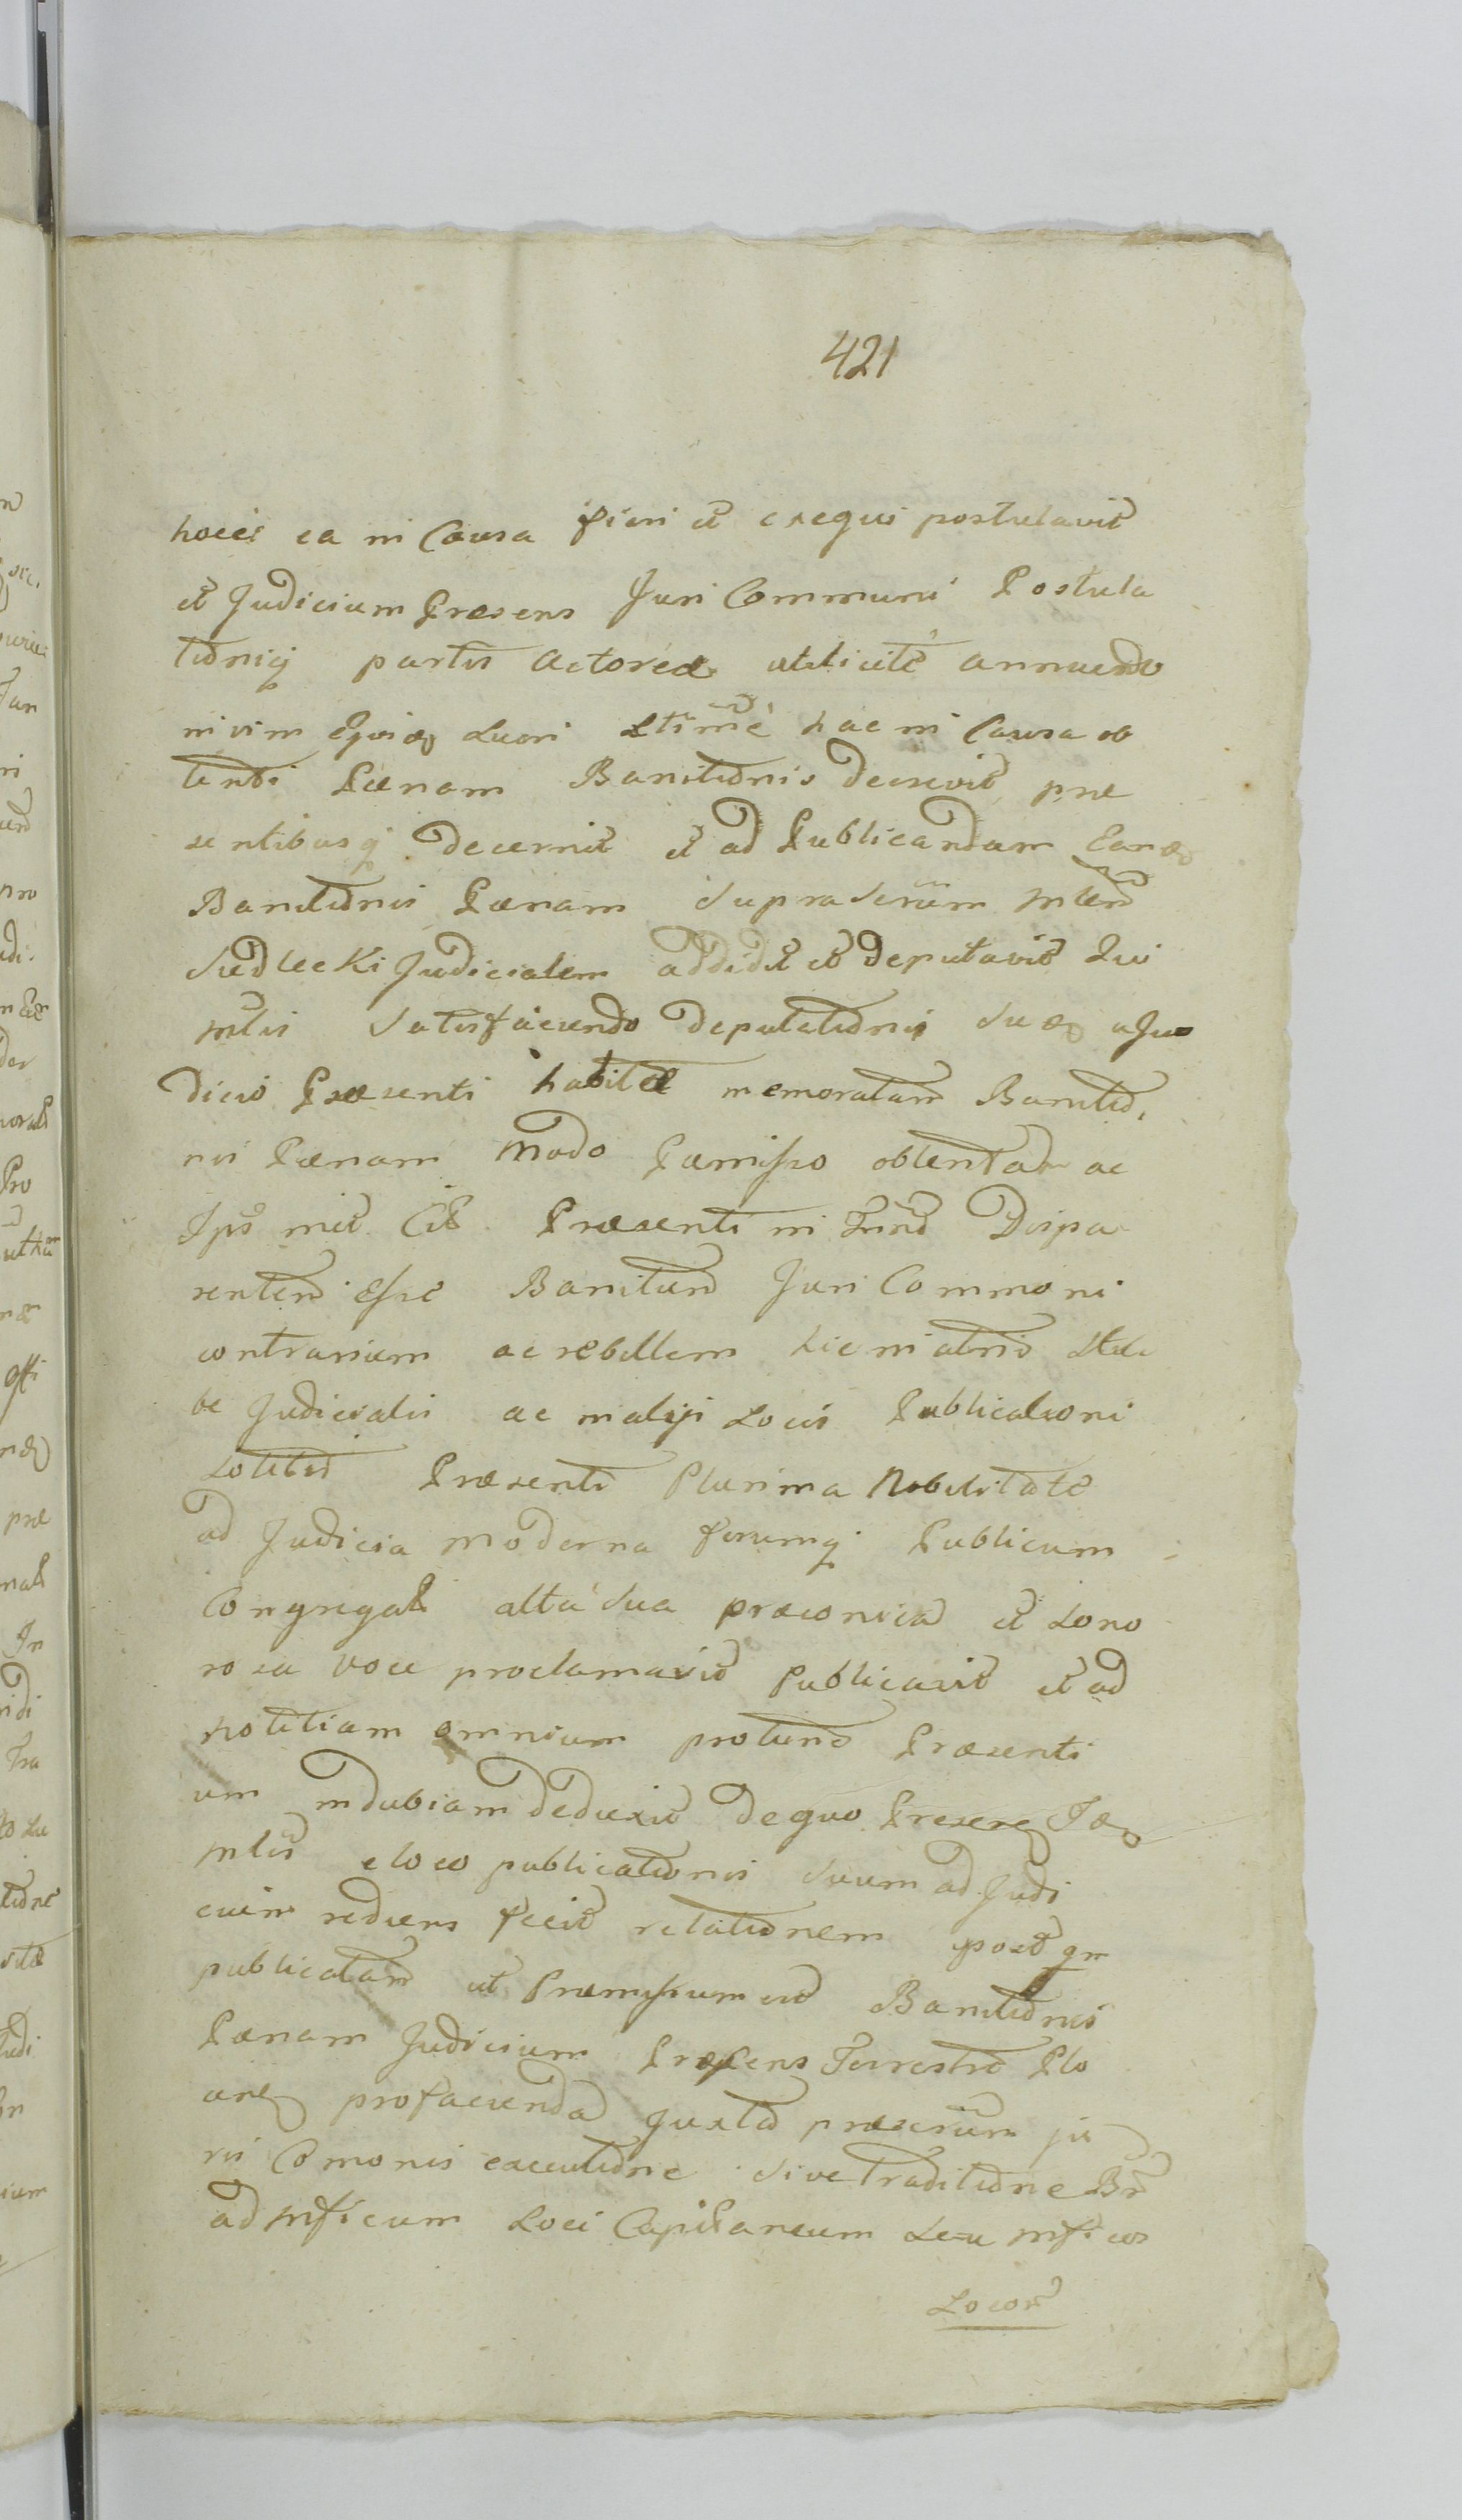 421
hocce ea in Causa fieri et exequi postulavit
et Judicium Præsens Juri Communi Postula
tioniq partis Actoreæ uti licité annuendo
in vim Ejusq Lucri Ltimé hac in Causa ob
tenti Pænam Banitionis decrevit præ
sentibusq decernit et ad Publicandam Eamq
Banitionis Pænam supra scrium Mlem
Siedlecki Judicialem addidit et deputavit Qui
Mlis satisfaciendo deputationi suæ a Ju
dicio Præsenti habitæ memoratam Banitio
nis Pænam Modo Pæmisso obtentam ac
Ipsũ Præsenti in Trnō Dispa
rentem esse Banitum Juri Commoni
contrarium ac rebellem hic in atrio Stu
bæ Judicialis ac in alys Locis Publicationi
Solitis Præsenti Plurima Nobilitate
ad Judicia Moderna forumq Publicum
Congregati alta sua præconica et Sono
rosa voce proclamavit Publicavit et ad
notitiam omnium protunc Præsenti
um indubiam deduxit de quo Præsens Idq
Mlis e loco publicationis suum ad Judi
cium rediens fecit relationem post qm
publicatam ut Præmissum est Banitionis
Pænam Judicium Præsens Terrestre Plo
cens pro facienda Juxta præscrium ju
ris Comonis executione sive traditione Br
ad Mficum Loci Capitaneum seu Mficos
Locor